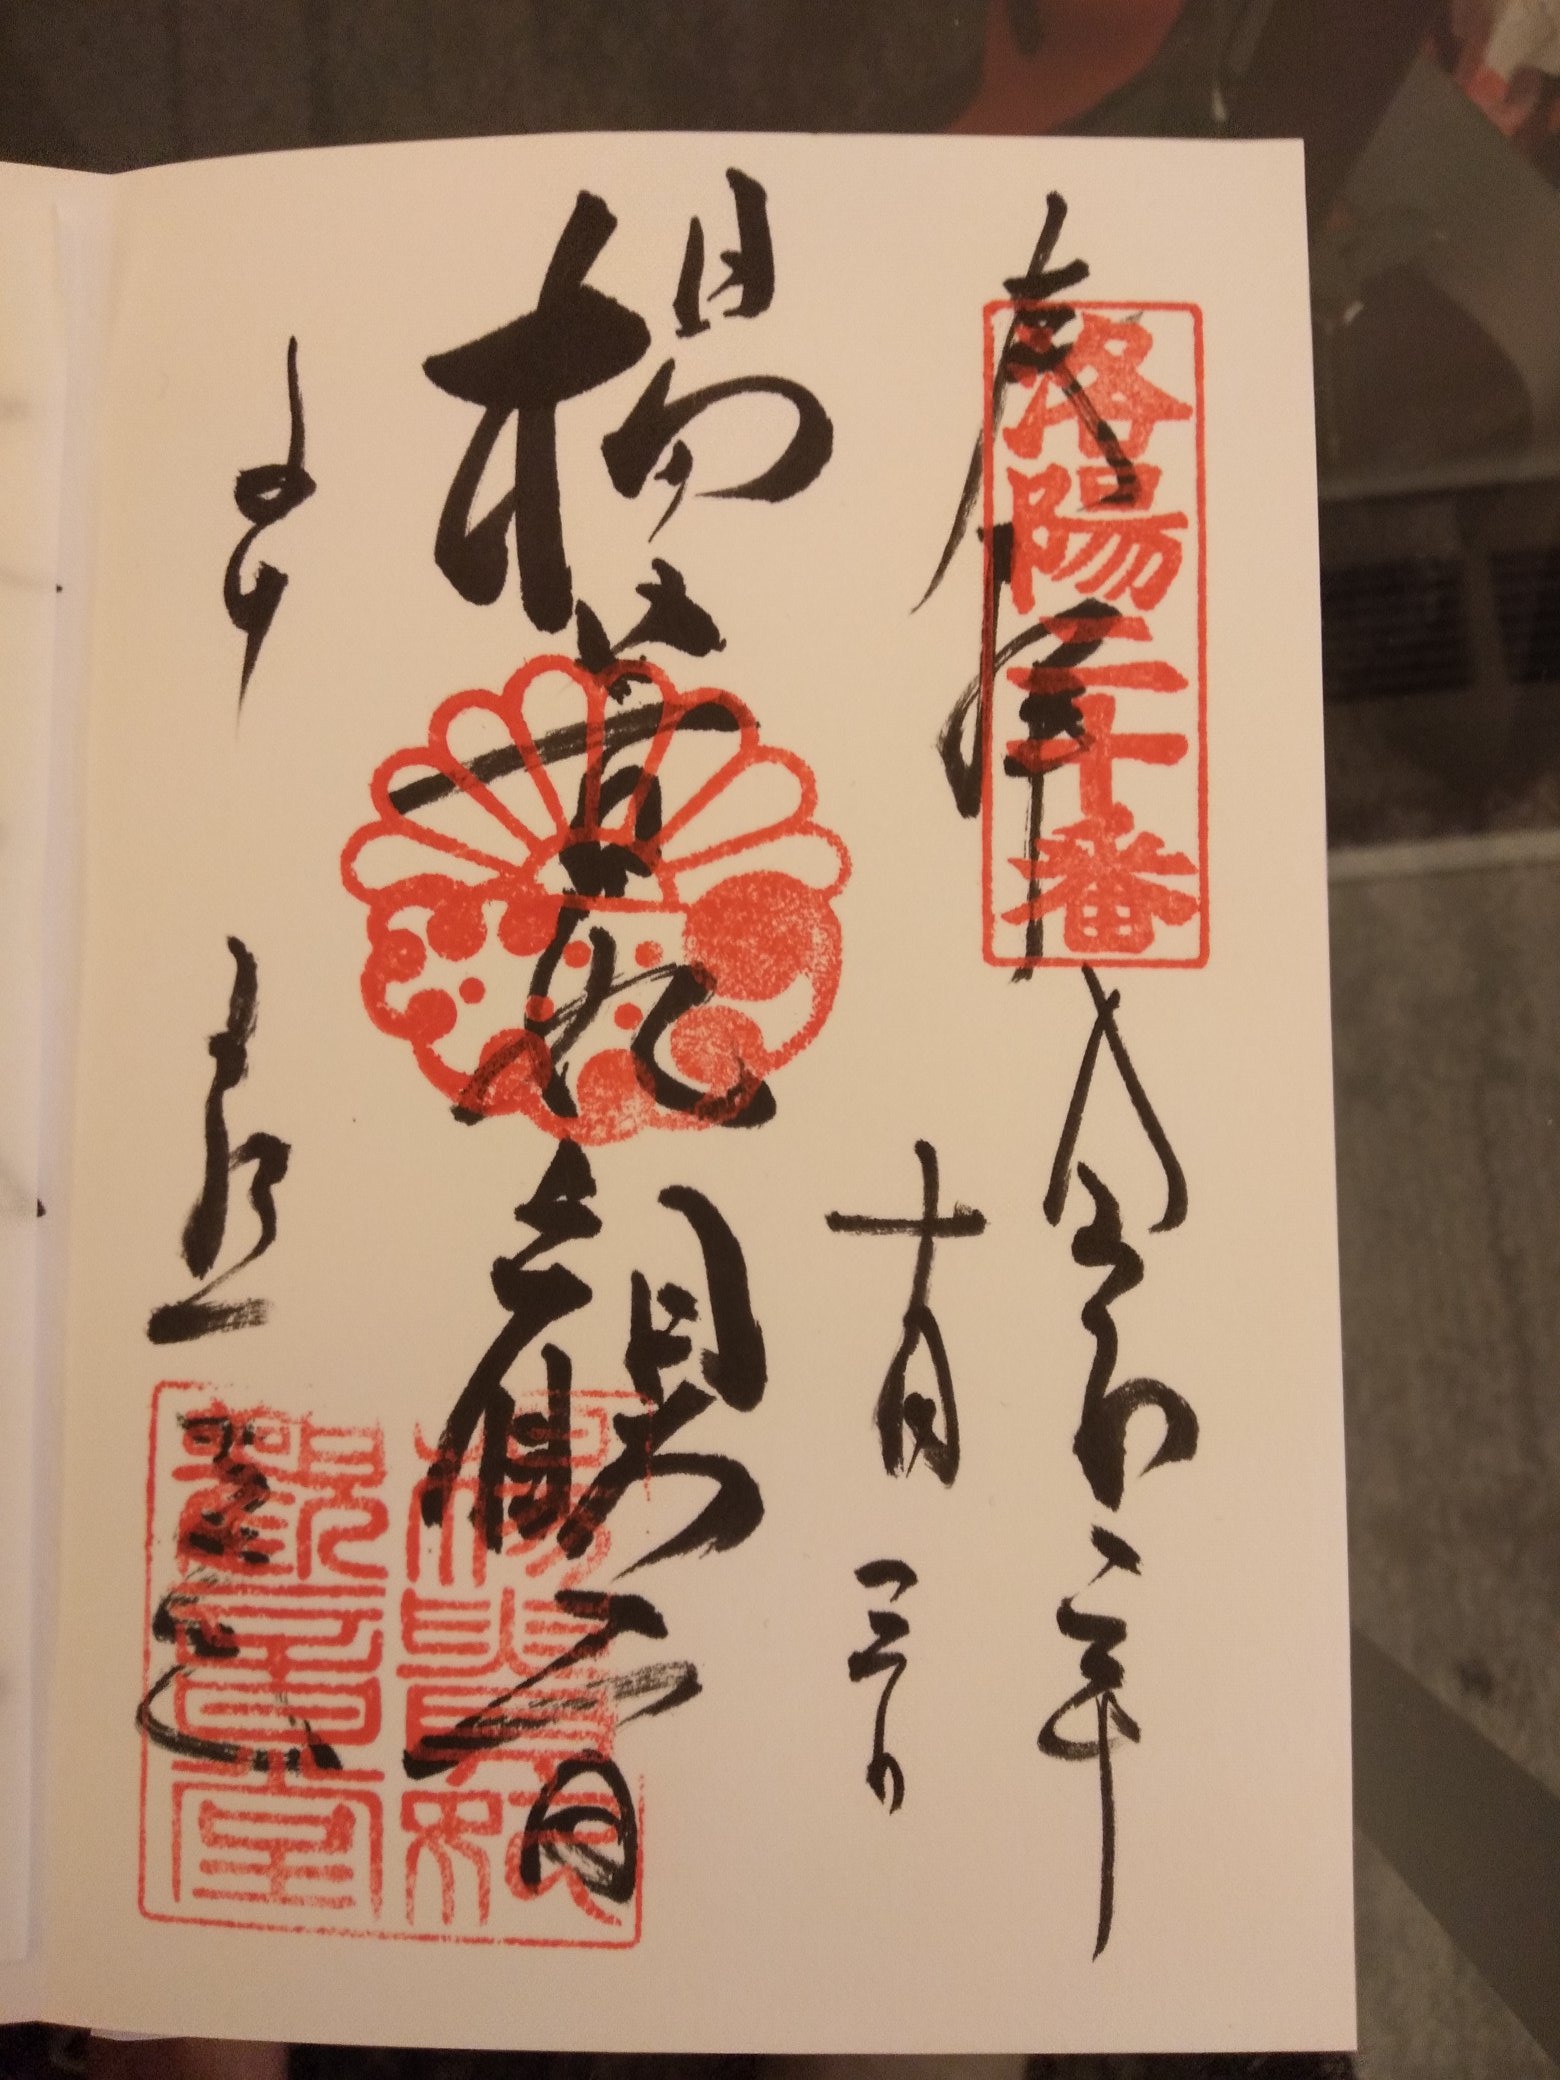 奉拝
洛陽二十番
令和二年
十月三日
楊貴妃観音
楊貴妃
觀音堂